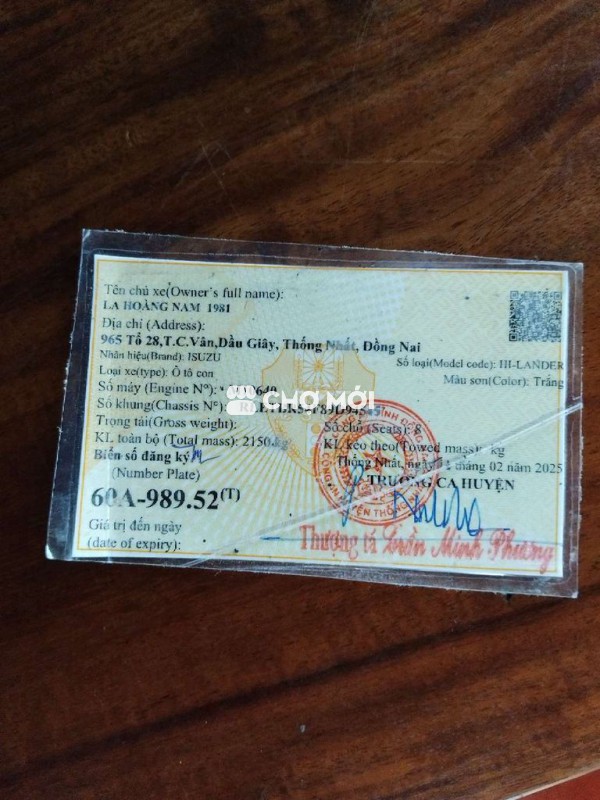 Tên chủ xe(Owner's full name):
LA HOÀNG NAM 1981
Địa chỉ (Address):
965 Tổ 28,T.C.Vân,Dầu Giây, Thống Nhất, Đồng Nai
Nhãn hiệu(Brand): ISUZU
Số loại(Model code): HI-LANDER
Loại xe(type): Ô tô con
Màu sơn(Color): Trắng
Số máy (Engine Nº):
CHỢ MỚI
Số khung(Chassis Nº):
Trọng tải(Gross weight):
Số chỗ (Seats): 8
KL toàn bộ (Total mass): 2150 kg
KL kéo theo(Towed mass): kg
Biển số đăng ký
Thống Nhất, ngày tháng 02 năm 2025
(Number Plate)
TRƯỞNG CA HUYỆN
60A-989.52(T)
Giá trị đến ngày
(date of expiry):
Thượng tá Trần Minh Phương